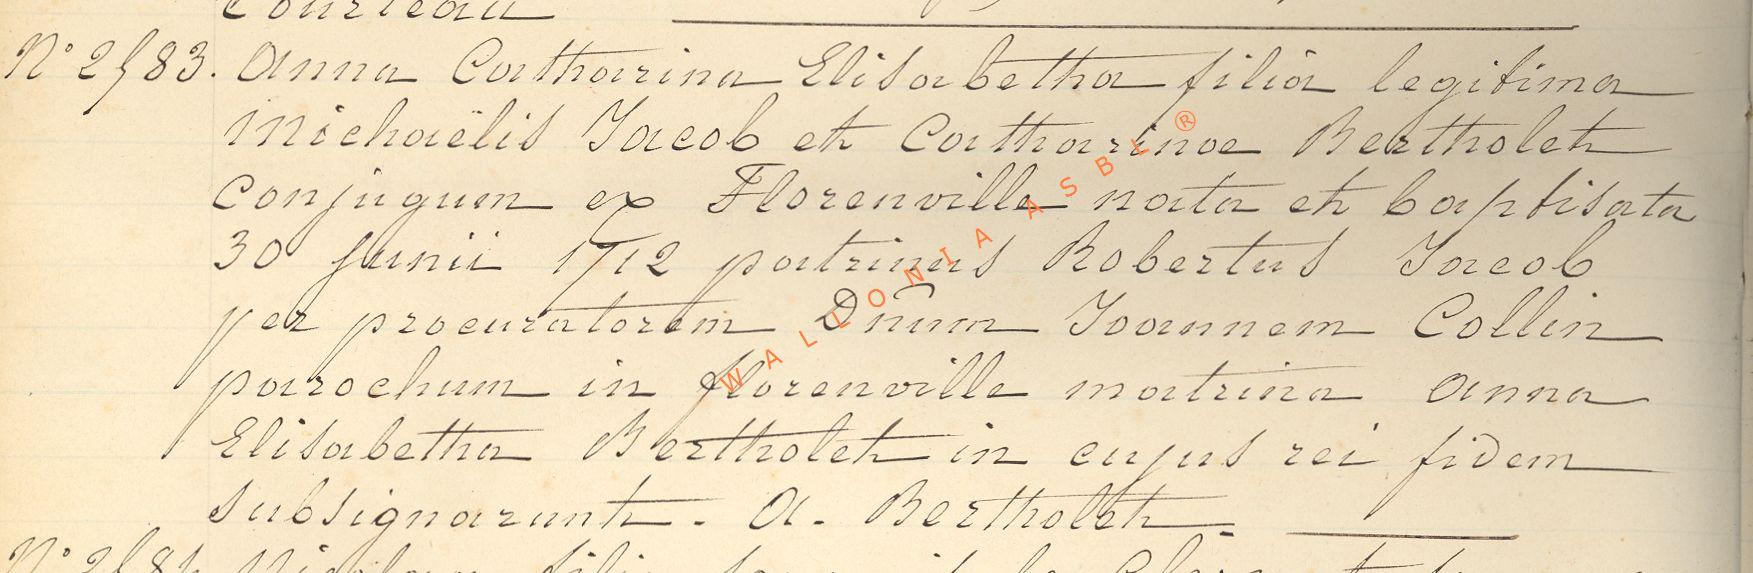 Courteau
N° 2583. Anna Catharina Elisabetha filia legitima
Michaëlis Jacob et Catharinae Bertholet
conjugum ex Florenville nata et baptisata
30 Junii 1712 patrinus Robertus Jacob
per procuratorem Dñum Joannem Collin
parochum in florenville matrina Anna
Elisabetha Bertholet in cujus rei fidem
subsignarunt. A. Bertholet.
WALLONIA ASBL ®
N° 2584